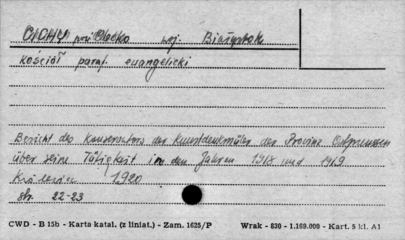 CICHY pow. Olecko woj. Białystok
kościół paraf. ewangelicki
Bericht des Konservators der Kunstdenkmäler der Provinz Ostpreussen
über seine Tätigkeit in den Jahren 1918 und 1919
Królewiec 1920
str. 22-23
CWD - B 15b - Karta katal. (z liniat.) - Zam. 1625/P Wrak - 830 - 1.169.000 - Kart. 5 kl. A1